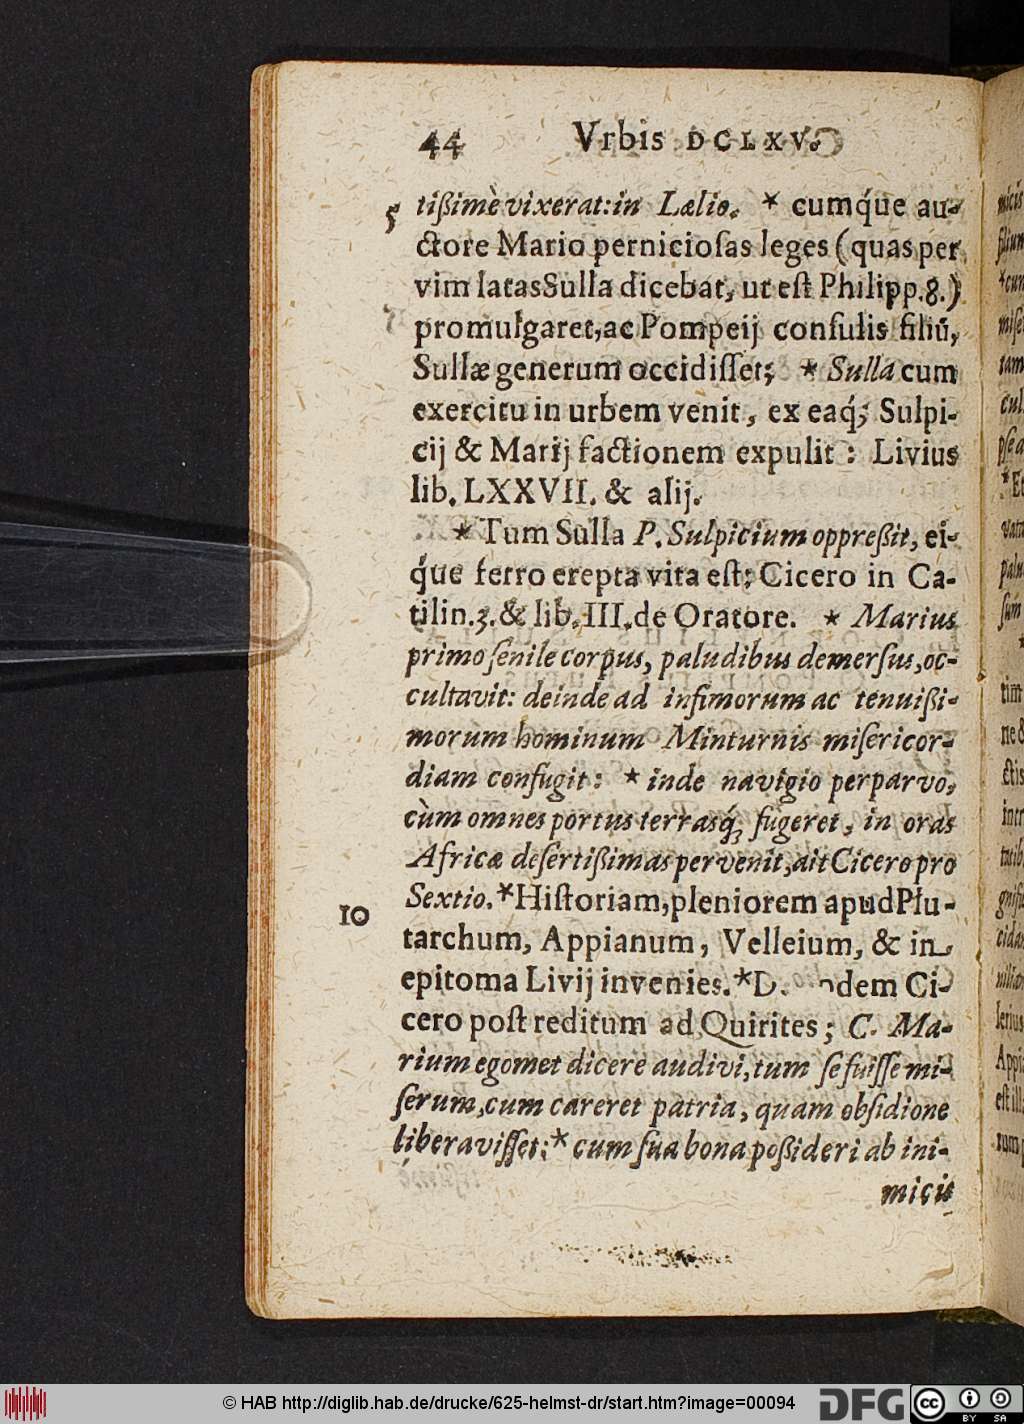 44 Vrbis DCLXV.
5 tißimè vixerat: in Lælio. * cumq́ue au-
ctore Mario perniciosas leges (quas per
vim latas Sulla dicebat, ut est Philipp. 8.)
promulgaret, ac Pompeij consulis filiū,
Sullæ generum occidisset; * Sulla cum
exercitu in urbem venit, ex eaq́; Sulpi-
cij & Marij factionem expulit: Livius
lib. LXXVII. & alij.
* Tum Sulla P. Sulpicium oppreßit, ei-
q́ue ferro erepta vita est: Cicero in Ca-
tilin. 3. & lib. III. de Oratore. * Marius
primo senile corpus, paludibus demersus, oc-
cultavit: deinde ad infimorum ac tenuißi-
morum hominum Minturnis misericor-
diam confugit: * inde navigio perparvo,
cùm omnes portus terrasq́; fugeret, in oras
Africæ desertißimas pervenit, ait Cicero pro
Sextio. * Historiam, pleniorem apud Plu-
10 tarchum, Appianum, Velleium, & in
epitoma Livij invenies. * D. dem Ci-
cero post reditum ad Quirites; C. Ma-
rium egomet dicere audivi, tum se fuisse mi-
serum, cum careret patria, quam obsidione
liberavisset; * cum sua bona poßideri ab ini-
micis
© HAB http://diglib.hab.de/drucke/625-helmst-dr/start.htm?image=00094
DFG
CC BY SA